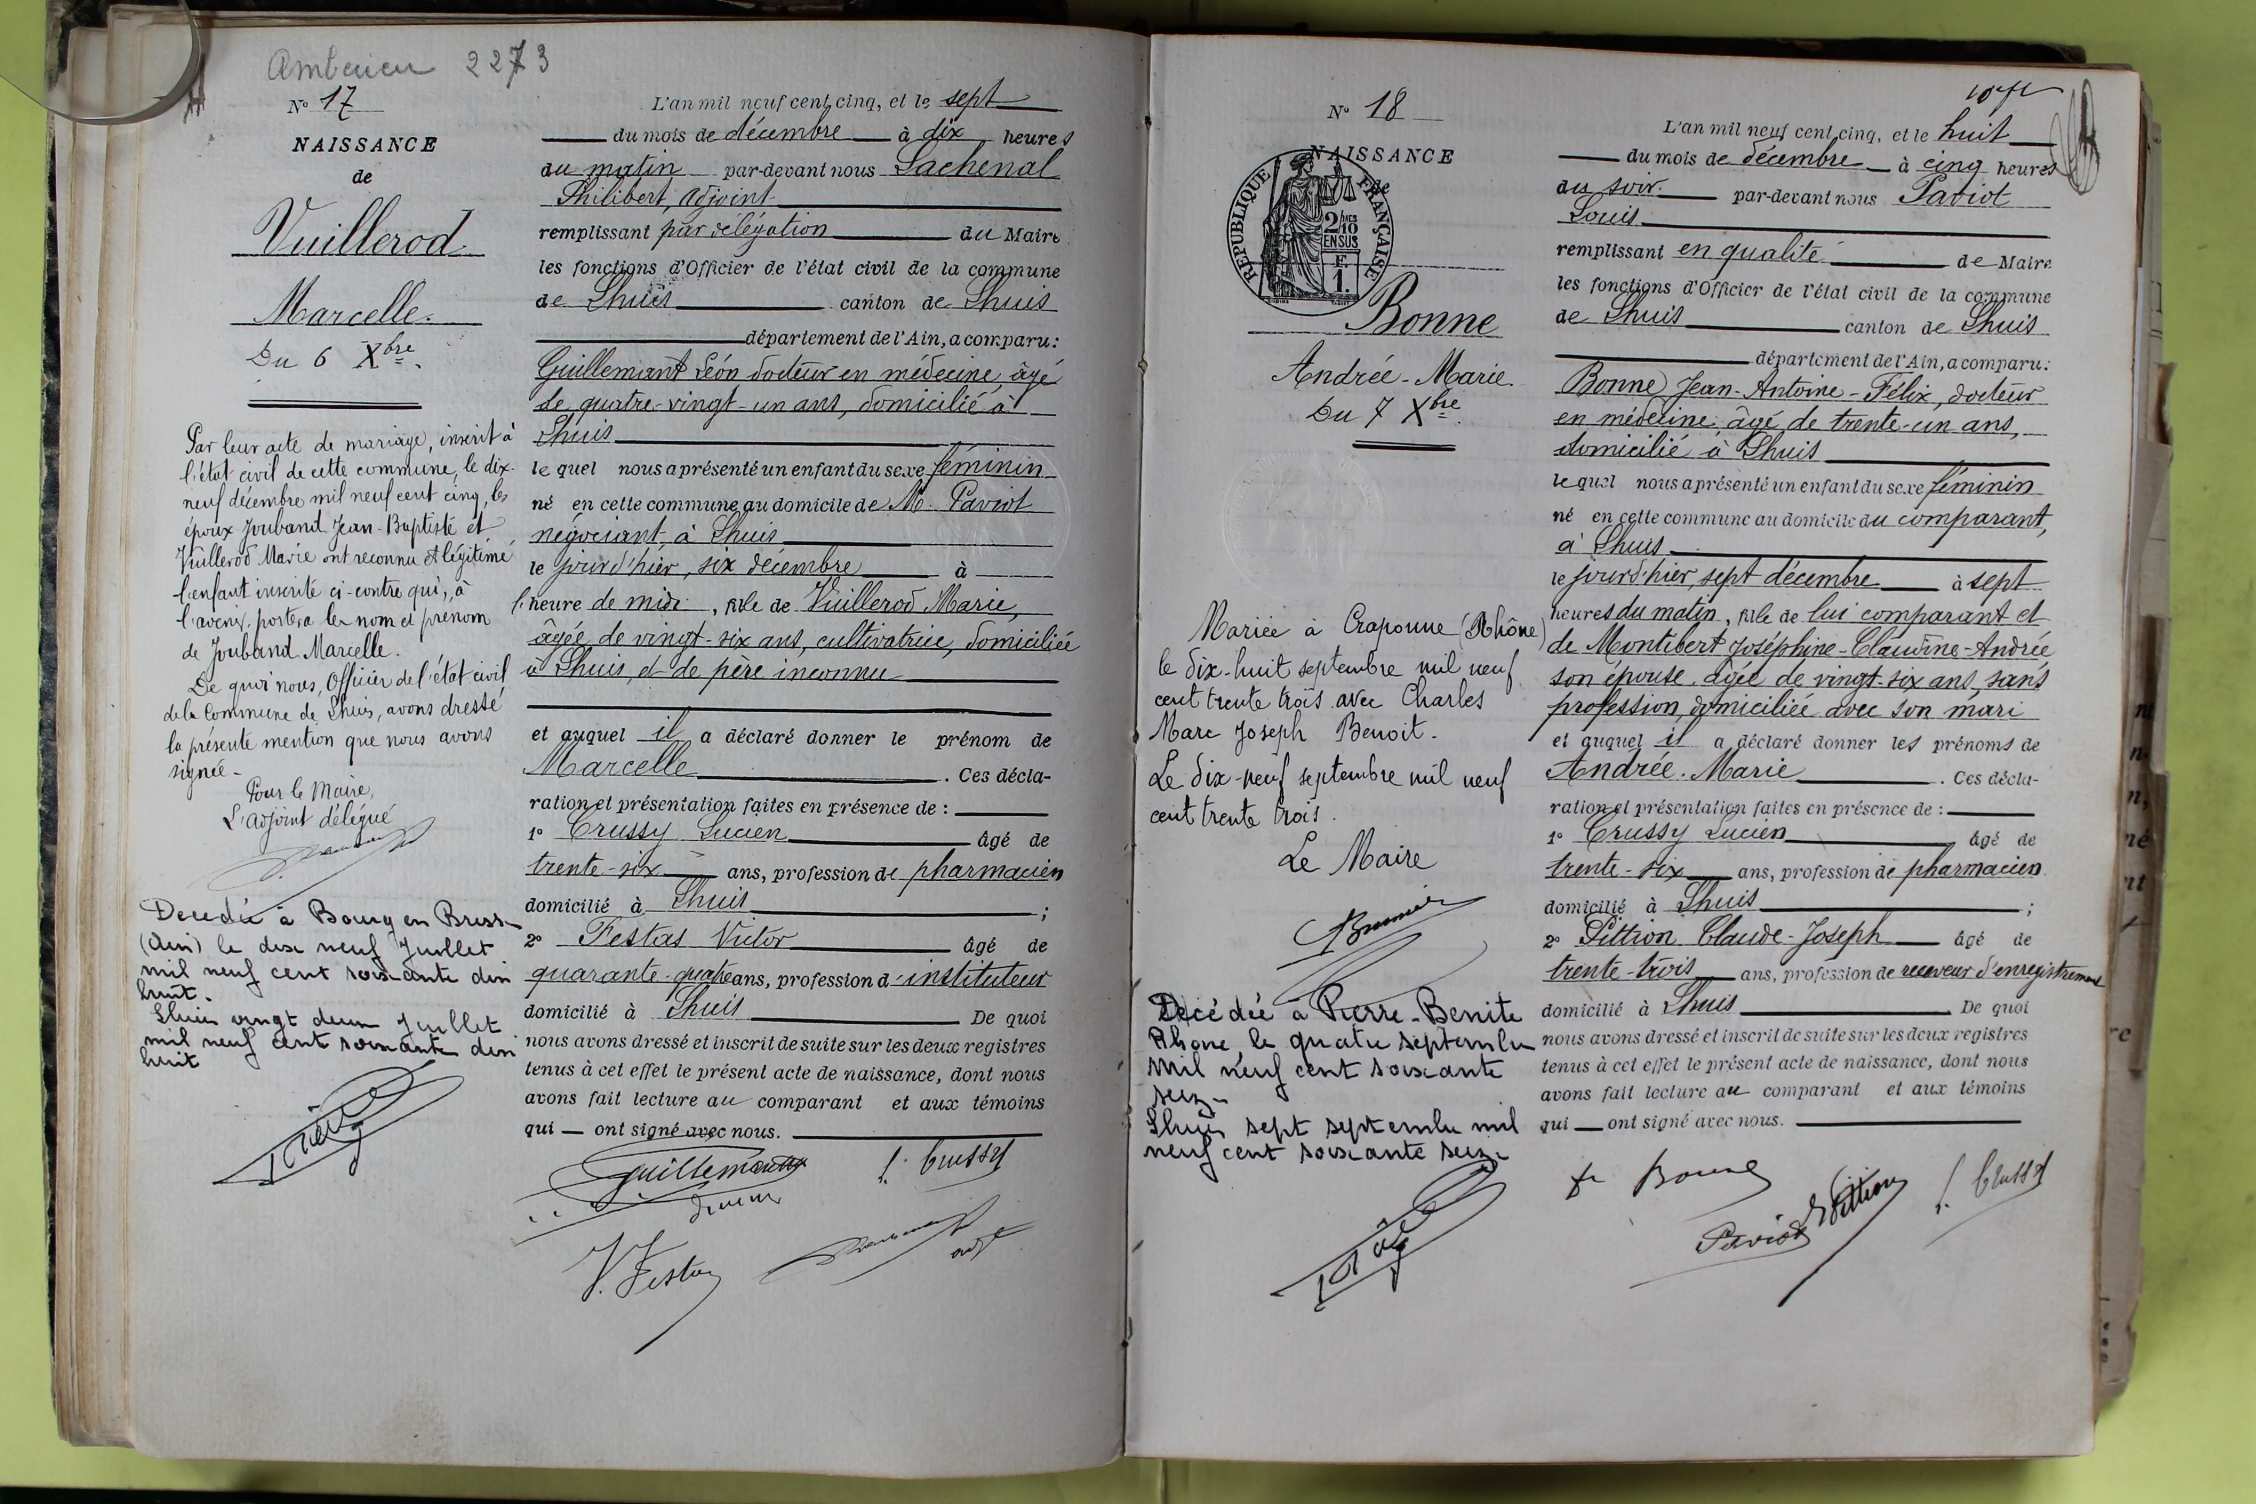 Amberieu 2273
N° 17
NAISSANCE
de
Vuillerod
Marcelle.
Du 6 Xbre.
Par leur acte de mariage, inscrit à
l'état civil de cette commune, le dix-
neuf décembre mil neuf cent cinq, les
époux Jouband Jean-Baptiste et
Vuillerod Marie ont reconnu et légitimé
l'enfant inscrite ci-contre qui, à
l'avenir, portera les nom et prénom
de Jouband Marcelle.
De quoi nous, Officier de l'état civil
de la Commune de Lhuis, avons dressé
la présente mention que nous avons
signée-
Pour le Maire,
L'adjoint délégué
Décédée à Bourg en Bresse
(Ain) le dix neuf Juillet
mil neuf cent soixante dix
huit.
Lhuis vingt deux Juillet
mil neuf cent soixante dix
huit
L'an mil neuf cent cinq, et le sept
du mois de décembre à dix heures
du matin par-devant nous Lachenal
Philibert, adjoint
remplissant par délégation du Maire
les fonctions d'Officier de l'état civil de la commune
de Lhuis canton de Lhuis
département de l'Ain, a comparu:
Guillemaut Léon docteur en médecine, âgé
de quatre-vingt-un ans, domicilié à
Lhuis
lequel nous a présenté un enfant du sexe féminin
né en cette commune au domicile de M. Paviot
négociant, à Lhuis
le jour d'hier, six décembre à
l'heure de midi, fille de Vuillerod Marie,
âgée de vingt-six ans, cultivatrice, domiciliée
à Lhuis, et de père inconnu
et auquel il a déclaré donner le prénom de
Marcelle. Ces décla-
ration et présentation faites en présence de :
1° Crussy Lucien âgé de
trente-six ans, profession de pharmacien
domicilié à Lhuis ;
2° Festas Victor âgé de
quarante-quatre ans, profession d'instituteur
domicilié à Lhuis De quoi
nous avons dressé et inscrit de suite sur les deux registres
tenus à cet effet le présent acte de naissance, dont nous
avons fait lecture au comparant et aux témoins
qui ont signé avec nous.
Guillemaut L. Crussy
V. Festas
N° 18
NAISSANCE
de
RÉPUBLIQUE FRANÇAISE
2/10 EN SUS
F. 1.
Bonne
Andrée-Marie.
Du 7 Xbre.
Mariée à Craponne (Rhône)
le dix-huit septembre mil neuf
cent trente trois avec Charles
Marc Joseph Benoit.
Le dix-neuf septembre mil neuf
cent trente trois.
Le Maire
Décédée à Pierre-Bénite
Rhône le quatre septembre
mil neuf cent soixante
seize
Lhuis sept septembre mil
neuf cent soixante seize
L'an mil neuf cent cinq, et le huit
du mois de décembre à cinq heures
du soir. par-devant nous Paviot
Louis
remplissant en qualité de Maire
les fonctions d'Officier de l'état civil de la commune
de Lhuis canton de Lhuis
département de l'Ain, a comparu:
Bonne Jean-Antoine-Félix, docteur
en médecine, âgé de trente-un ans,
domicilié à Lhuis
lequel nous a présenté un enfant du sexe féminin
né en cette commune au domicile du comparant,
à Lhuis
le jour d'hier, sept décembre à sept
heures du matin, fille de lui comparant et
de Montibert Joséphine-Claudine-Andrée
son épouse, âgée de vingt-six ans, sans
profession, domiciliée avec son mari
et auquel il a déclaré donner les prénoms de
Andrée. Marie. Ces décla-
ration et présentation faites en présence de :
1° Crussy Lucien âgé de
trente-six ans, profession de pharmacien
domicilié à Lhuis ;
2° Pittion Claude-Joseph âgé de
trente-trois ans, profession de receveur d'enregistrement
domicilié à Lhuis De quoi
nous avons dressé et inscrit de suite sur les deux registres
tenus à cet effet le présent acte de naissance, dont nous
avons fait lecture au comparant et aux témoins
qui ont signé avec nous.
Bonne
Paviot Pittion L. Crussy